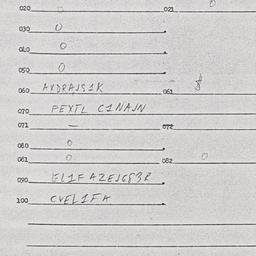 020 0 021 0
030 0
040 0
050 0
060 061
070 PEXTL C1NAJN
071 — 072
080 0
081 0 082 0
090
100 CVEL1FA